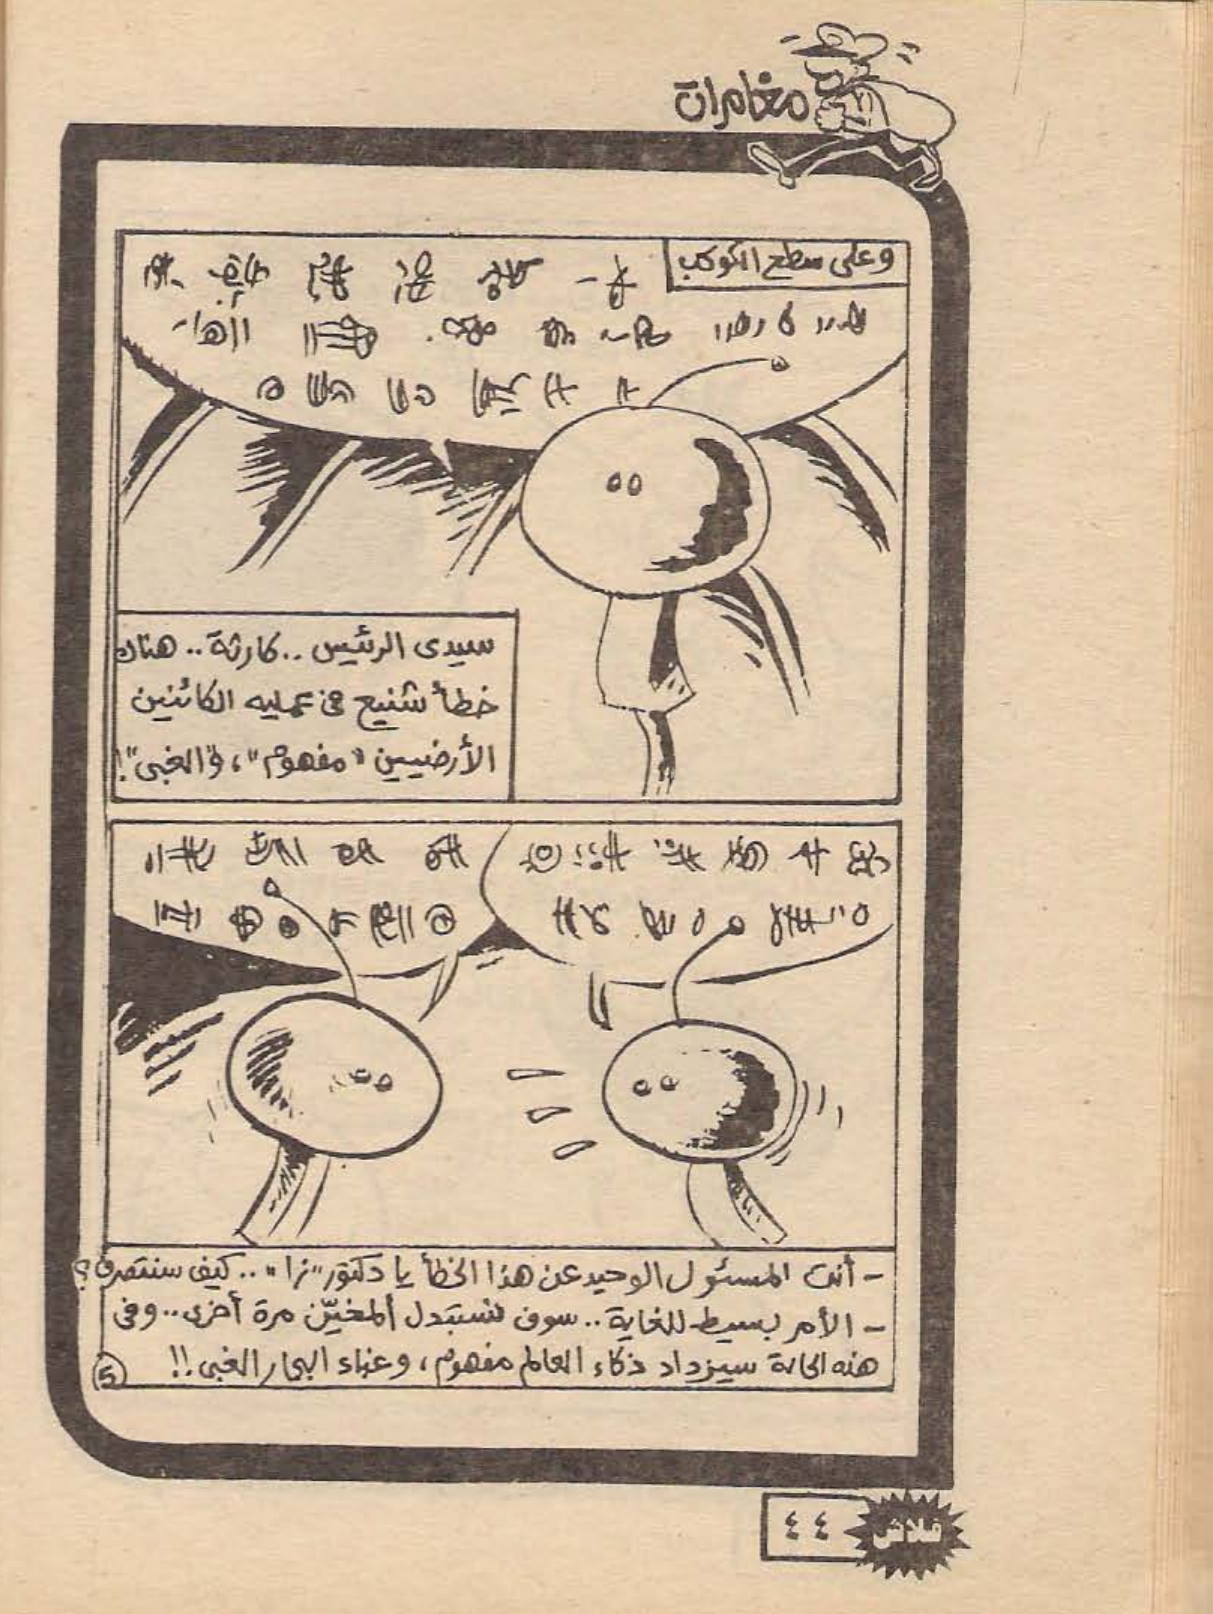 مغامرات
وعلى سطح الكوكب
سيدى الرئيس .. كارثة .. هناك
خطأ شنيع فى عمليه الكائنين
الأرضيين "مفهوم"، و"الغبى"!
- أنت المسئول الوحيد عن هذا الخطأ يا دكتور "نزا" .. كيف سنتصرف؟
- الأمر بسيط للغاية .. سوف نستبدل المخيّن مرة أخرى .. وفى
هذه الحالة سيزداد ذكاء العالم مفهوم، وغباء البحار الغبى .!!
5
٤٤
فلاش